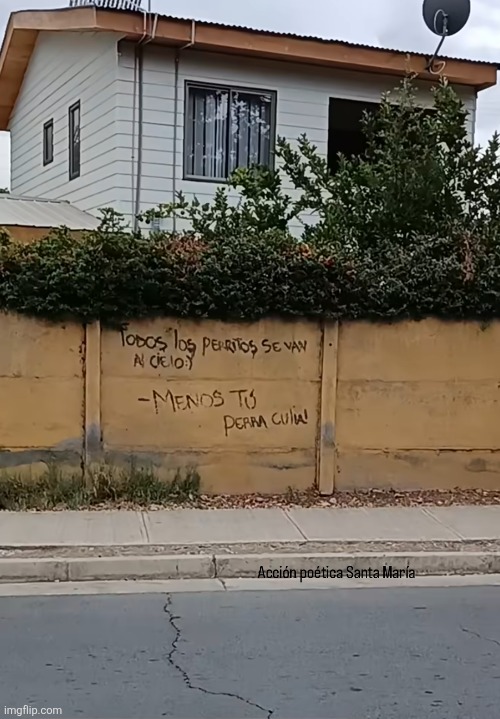 Todos los perritos se van
al cielo:y
-Menos tú
perra culia!
Acción poética Santa María
imgflip.com